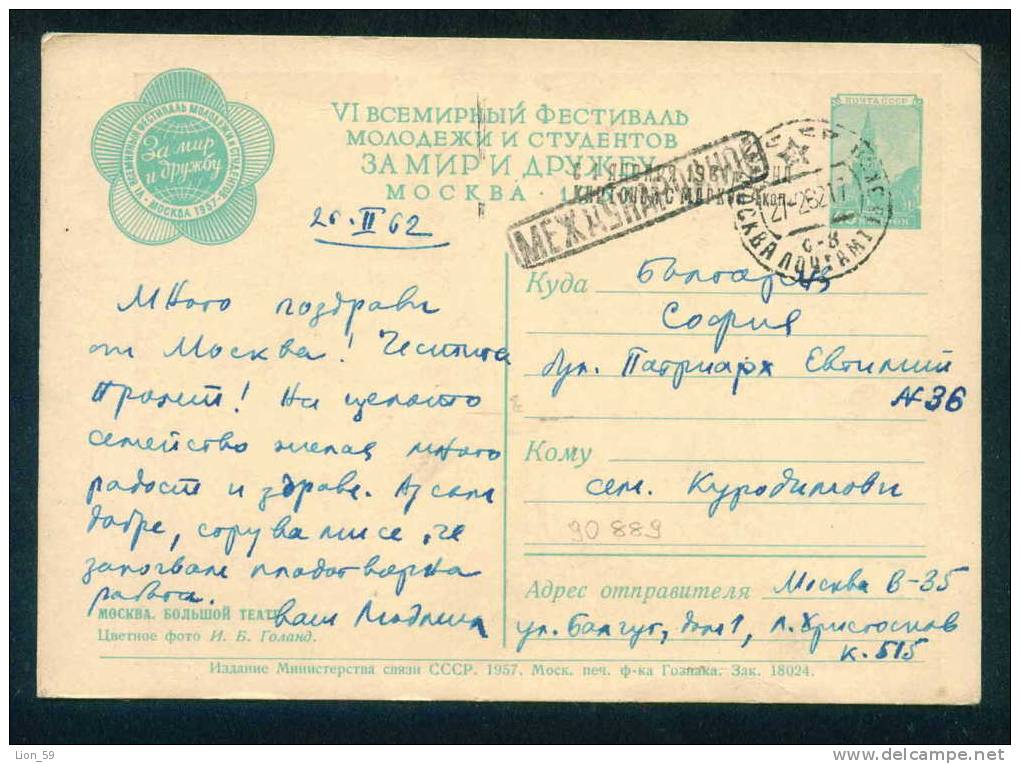 VI ВСЕМИРНЫЙ ФЕСТИВАЛЬ МОЛОДЕЖИ И СТУДЕНТОВ
За мир
и дружбу
МОСКВА 1957
VI ВСЕМИРНЫЙ ФЕСТИВАЛЬ
МОЛОДЕЖИ И СТУДЕНТОВ
ЗА МИР И ДРУЖБУ
МОСКВА
ПОЧТА СССР
МЕЖДУНАРОДНОЕ
МОСКВА ПОЧТАМТ
26.II 62
Много поздрави
от Москва! Честита
пролет! На цялото
семейство желая много
радост и здраве. Аз съм
добре, струва ми се, че
започвам плодотворна
работа.
ваш Людмил
МОСКВА. БОЛЬШОЙ ТЕАТР
Цветное фото И. Б. Голанд.
Куда България
София
бул. Патриарх Евтимий
N 36
Кому
сем. Куродимови
90 889
Адрес отправителя Москва В-35
ул. Балчуг, дом 1, Л. Христосков
к. 515
Издание Министерства связи СССР. 1957. Моск. печ. ф-ка Гознака. Зак. 18024.
Lion_59
http://www.delcampe.net